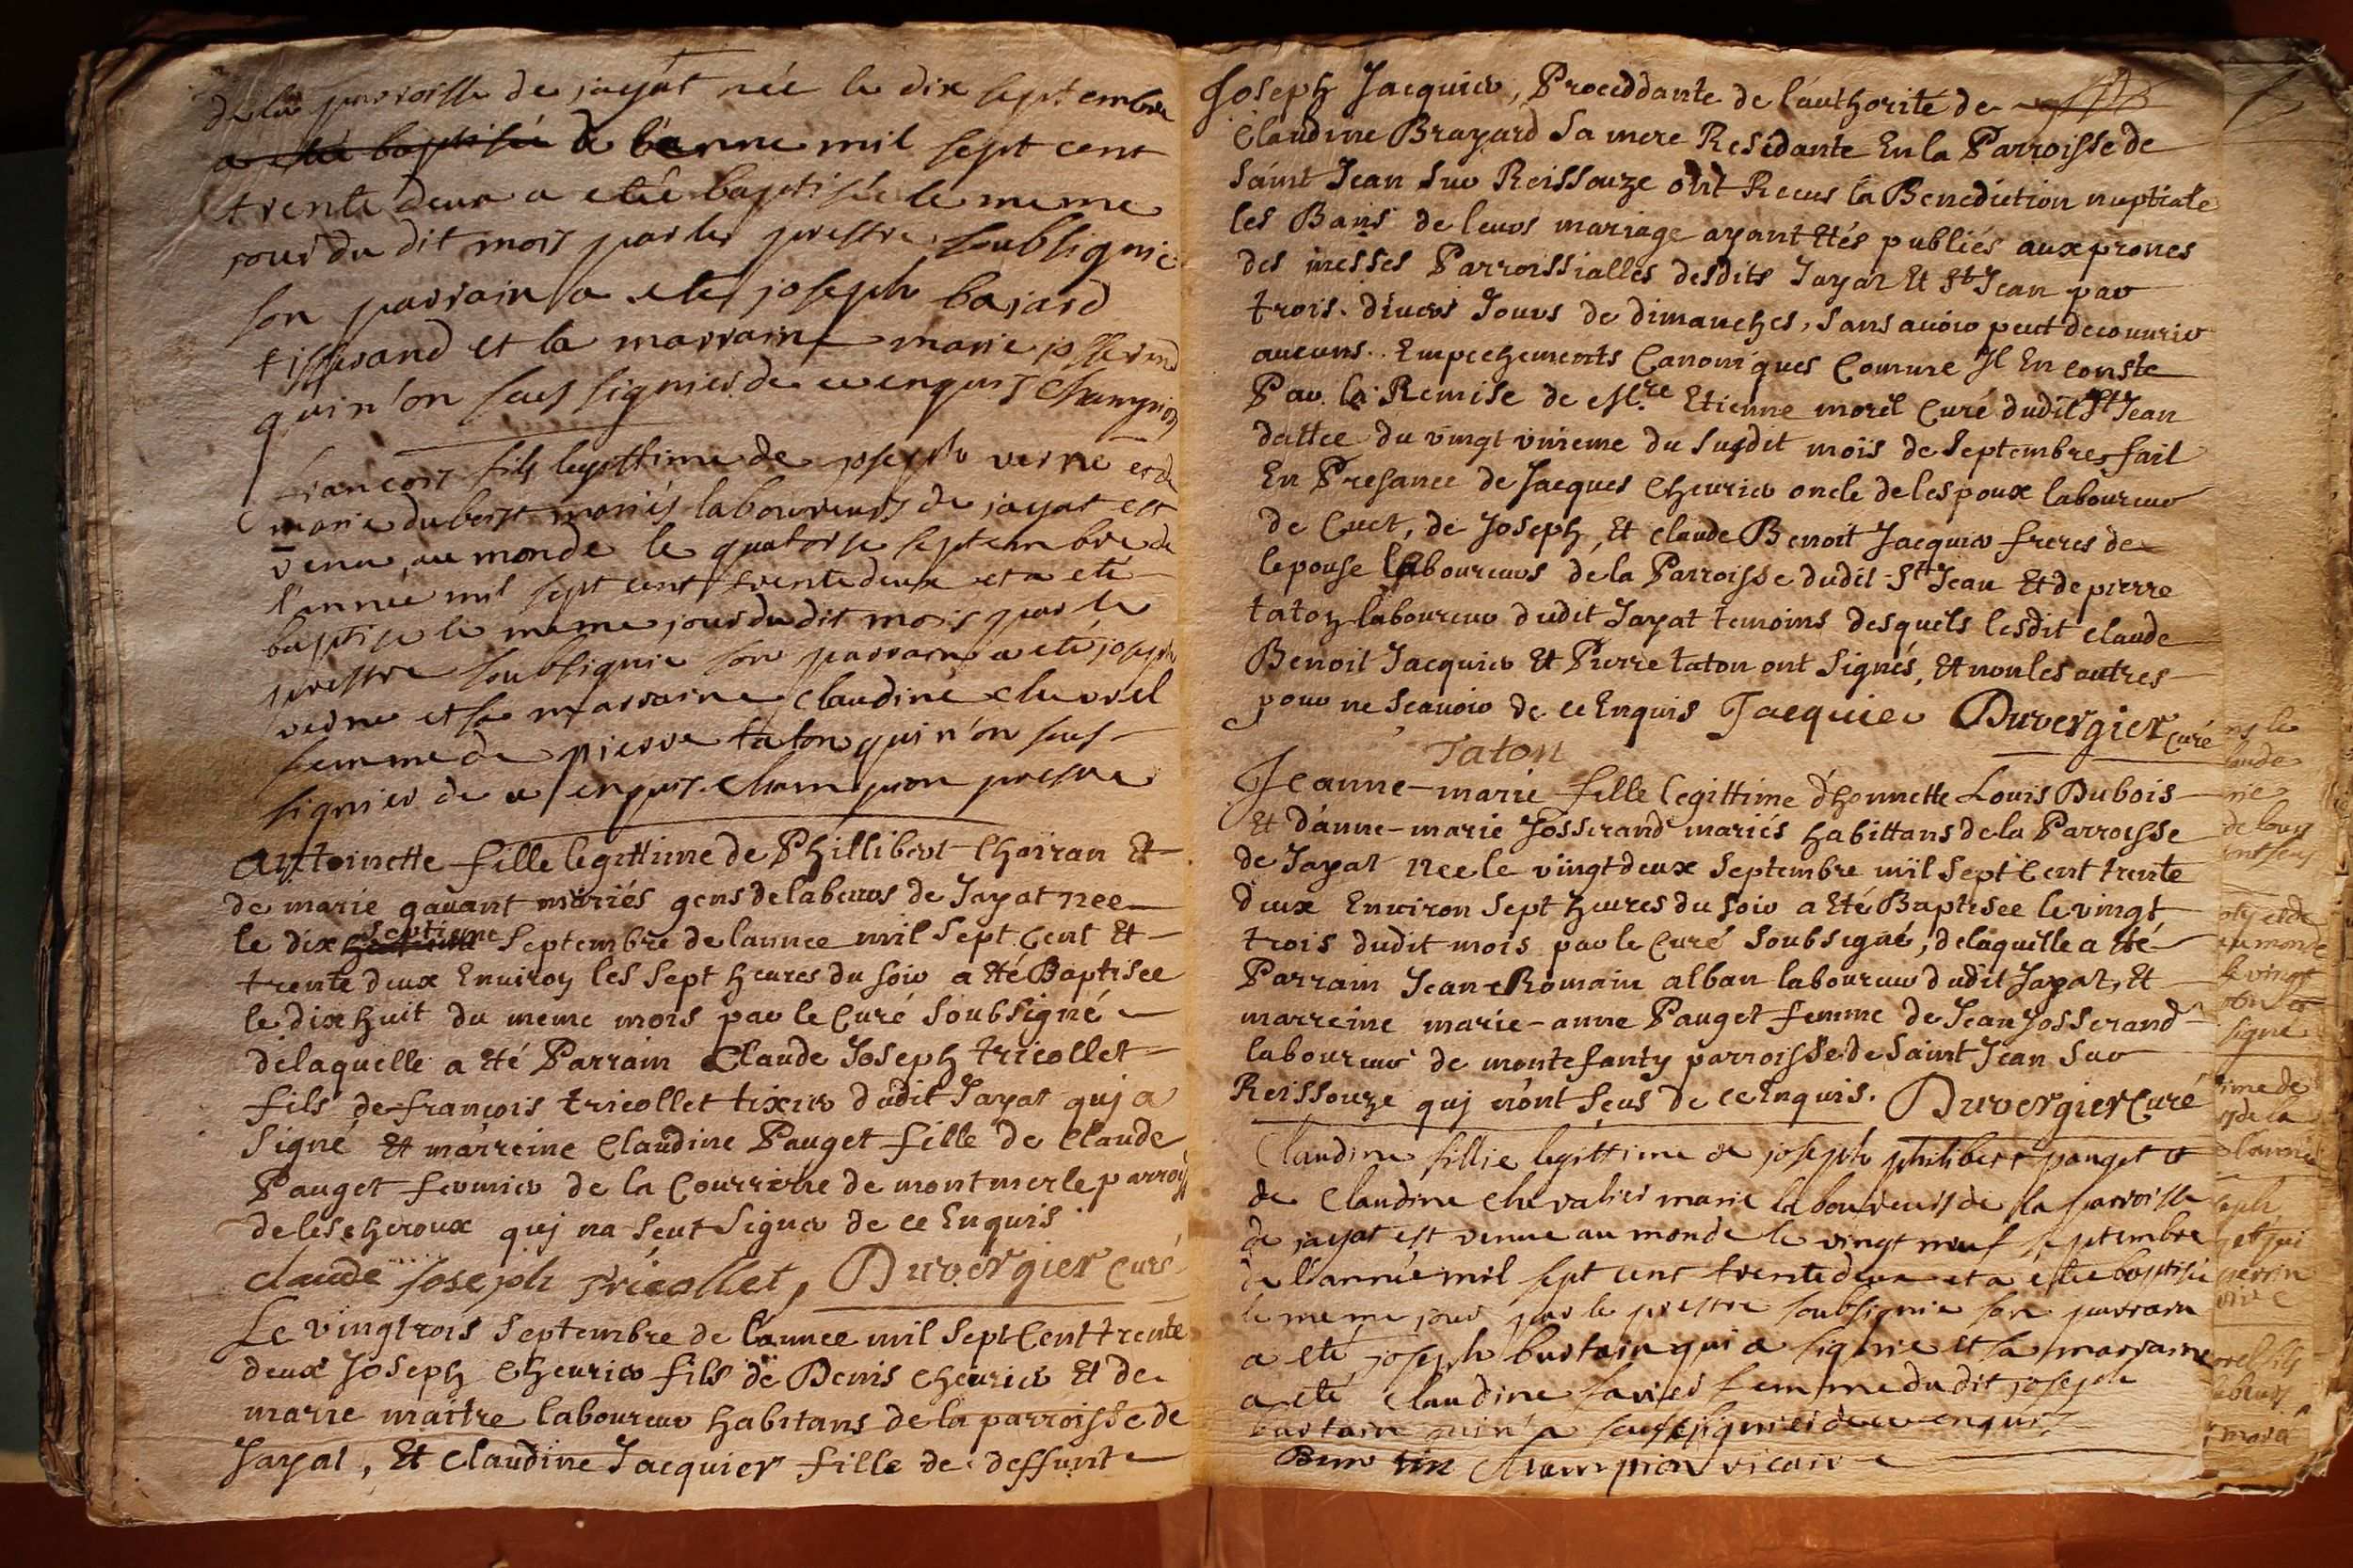 de la parroisse de jayat née le dix septembre
a eté baptisée de l'anne mil sept cent
trente deux a eté baptisée le meme
jour du dit mois par le prestre soubsignie
son parrain a ete joseph bajard
tisserand et la marraine marie josserand
qui n'on sceus signier de ce enquis Champion
francois fils legittime de joseph verne et de
marie dubois mariés laboureurs de jayat est
venu au monde le quatorse septembre de
l'année mil sept cent trente deux et a eté
baptise le meme jour du dit mois par le
prestre soubsignie son parrain a eté joseph
verne et sa marraine Claudine chevrel
femme de pierre taton qui n'on sceus
signier de ce enquis. Champion prestre
Antoinette fille legittime de Phillibert Choiran Et
de marie gavant mariés gens de labeurs de Jayat nee
le dix septieme Septembre de lannee mil Sept Cent Et
trente deux Environ les Sept heures du soir a Eté Baptisee
le dix huit du meme mois par le Curé Soubsigné
delaquelle a Eté Parrain Claude Joseph tricollet
fils de françois tricollet tixier dudit Jayat quj a
Signé Et marreine Claudine Pauget fille de Claude
Pauget fermier de la Courriere de montmerle parroiss
de lescheroux quj na Sceut Signer de ce Enquis
claude Joseph Tricollet, Duvergier Curé
Le vingtrois Septembre de l'annee mil Sept Cent trente
deux Joseph Cheurier fils de Denis cheurier Et de
marie maitre laboureur habitans de la parroisse de
Jayat, Et Claudine Jacquier fille de deffunt
Joseph Jacquier, Proceddante de l'authorité de
Claudine Brayard Sa mere Residante En la Parroisse de
Saint Jean Sur Reissouze ont Receus la Benediction nuptiale
les Bans de leurs mariage ayant Etés publiés aux prones
des messes Parroissialles desdits Jayat Et St Jean par
trois divers Jours de dimanches, Sans avoir peut decouvrir
aucuns Empechements Canoniques Comme Il En conste
Par la Remise de Mre Etienne morel Curé dudit St Jean
dattee du vingt unieme du Susdit mois de Septembre, fait
En Presance de Jacques Cheurier oncle de lespoux laboureur
de Cuet, de Joseph, Et Claude Benoit Jacquier freres de
lepouse laboureurs de la Parroisse dudit St Jean Et de pierre
taton laboureur dudit Jayat temoins desquels lesdit Claude
Benoit Jacquier Et Pierre taton ont Signés, Et non les autres
pour ne Scavoir de ce Enquis Jacquier Duvergier Curé
Taton
Jeanne-marie fille legittime d'honnette Louis Dubois
Et d'anne-marie Josserand mariés habittans de la Parroisse
de Jayat nee le vingt deux Septembre mil Sept Cent trente
deux Environ Sept heures du soir a Eté Baptisee le vingt
trois dudit mois par le Curé Soubsigné, delaquelle a Eté
Parrain Jean Romain alban laboureur dudit Jayat, Et
marreine marie-anne Pauget femme de Jean Josserand
laboureur de montefanty parroisse de Saint Jean Sur
Reissouze quj n'ont Sceus de ce Enquis. Duvergier Curé
Claudine fillie legittime de joseph philibert pauget et
de Claudine Chevalier marie laboureurs de la parroisse
de jayat est venue au monde le vingt neuf septembre
de l'année mil sept cent trente deux et a estée baptisée
le meme jour par le prestre soubsignie son parrain
a eté joseph burtain qui a signie et sa marraine
a eté Claudine favier femme du dit joseph
burtain qui n'a sceus signier de ce enquis
Burtin Champion vicaire